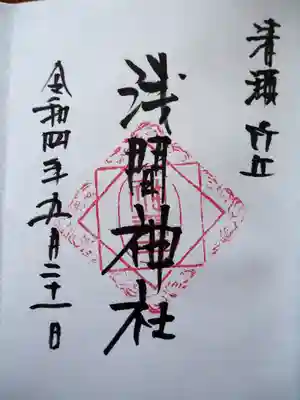 清瀬 竹丘
浅間神社
令和四年九月二十一日